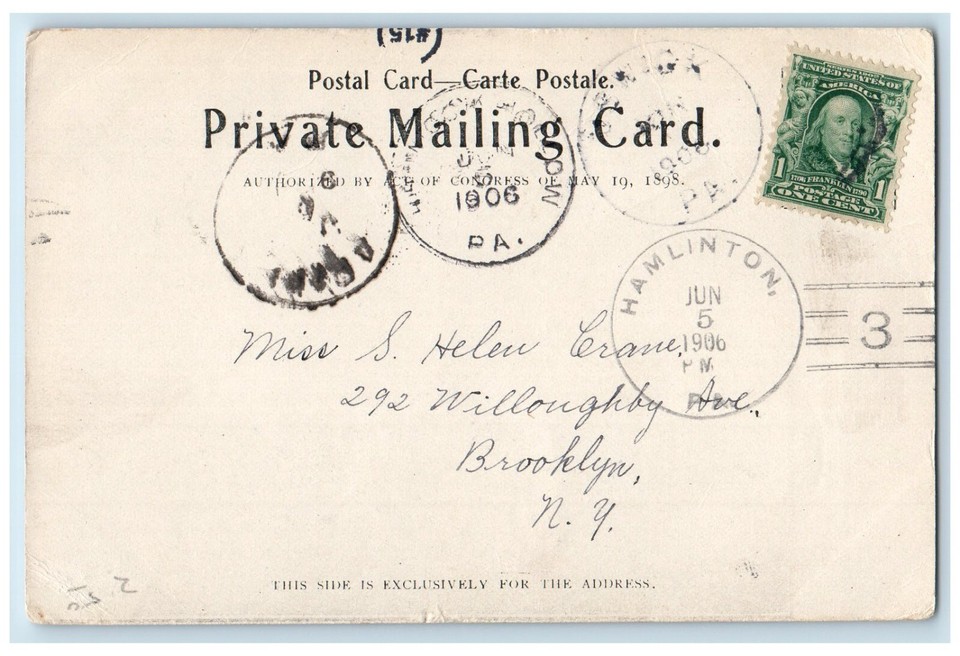 (#15)
Postal Card—Carte Postale.
Private Mailing Card.
AUTHORIZED BY ACT OF CONGRESS OF MAY 19, 1898.
SERIES 1902
UNITED STATES OF
AMERICA
1 1706 FRANKLIN 1790 1
POSTAGE
ONE CENT
JUN
1906
PA.
1906
PA.
HAMLINTON,
JUN
5
1906
PM
PA.
3
Miss S. Helen Crane,
292 Willoughby Ave.,
Brooklyn,
N. Y.
THIS SIDE IS EXCLUSIVELY FOR THE ADDRESS.